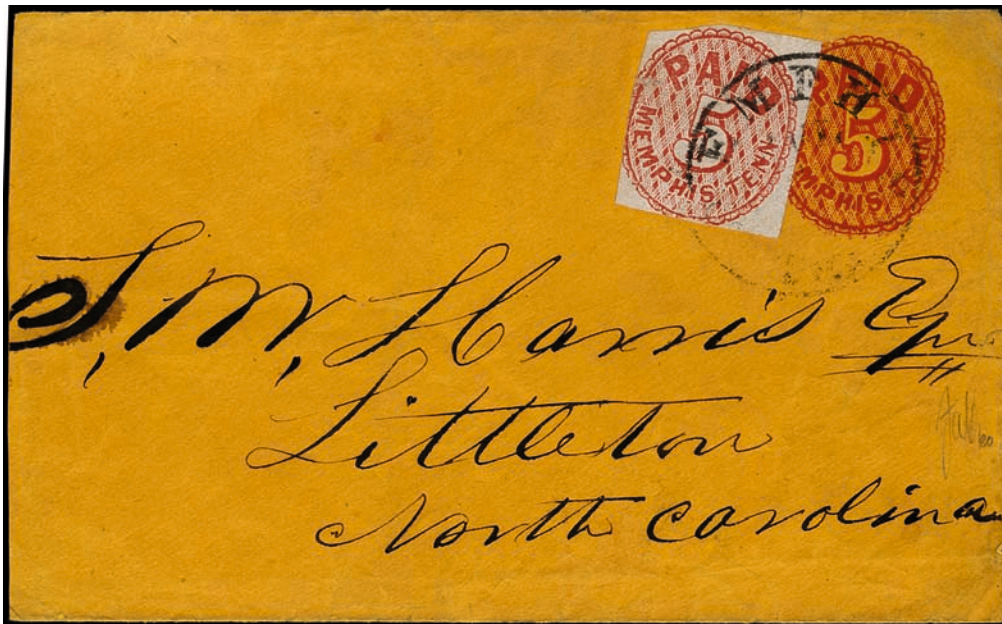 PAID
5
MEMPHIS, TENN.
PAID
5
MEMPHIS, TENN.
S. M. Harris Esqr
Littleton
North Carolina